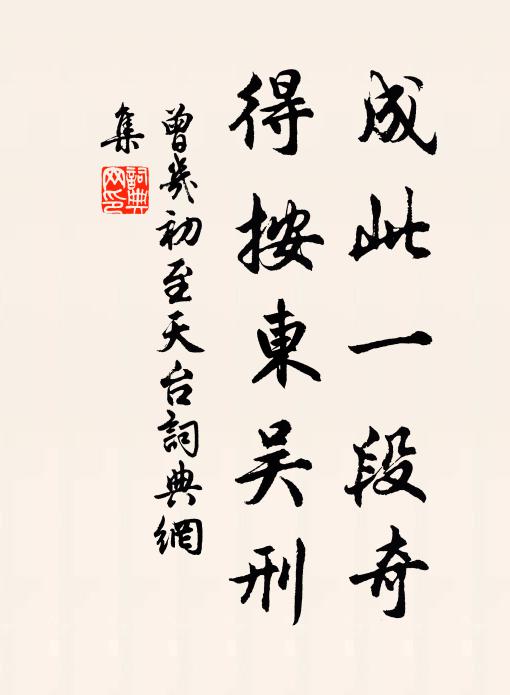 成此一段奇
得按東吴刑
曾幾初至天台詞典網
集
詞典
网印